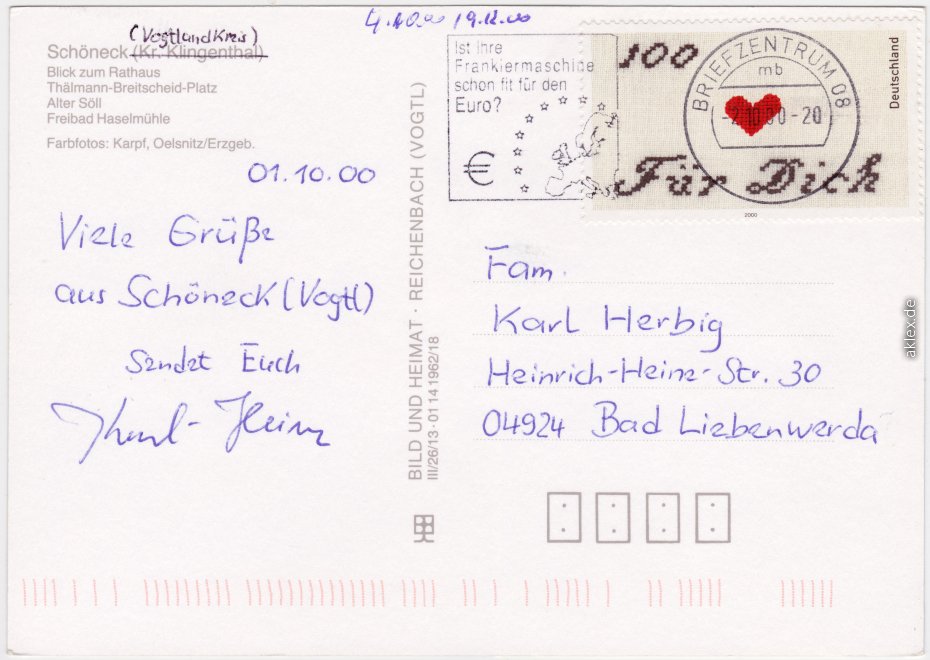 4.10.00 19.12.00
(Vogtlandkreis)
Schöneck (Kr. Klingenthal)
Blick zum Rathaus
Thälmann-Breitscheid-Platz
Alter Söll
Freibad Haselmühle
Farbfotos: Karpf, Oelsnitz/Erzgeb.
01.10.00
Viele Grüße
aus Schöneck (Vogtl)
sendet Euch
Karl-Heinz
BILD UND HEIMAT · REICHENBACH (VOGTL)
III/26/13·01 14 1962/18
Ist Ihre
Frankiermaschine
schon fit für den
Euro?
€
100
Für Dich
Deutschland
2000
BRIEFZENTRUM 08
mb
-2.10.00-20
Fam.
Karl Herbig
Heinrich-Heine-Str. 30
04924 Bad Liebenwerda
aklex.de